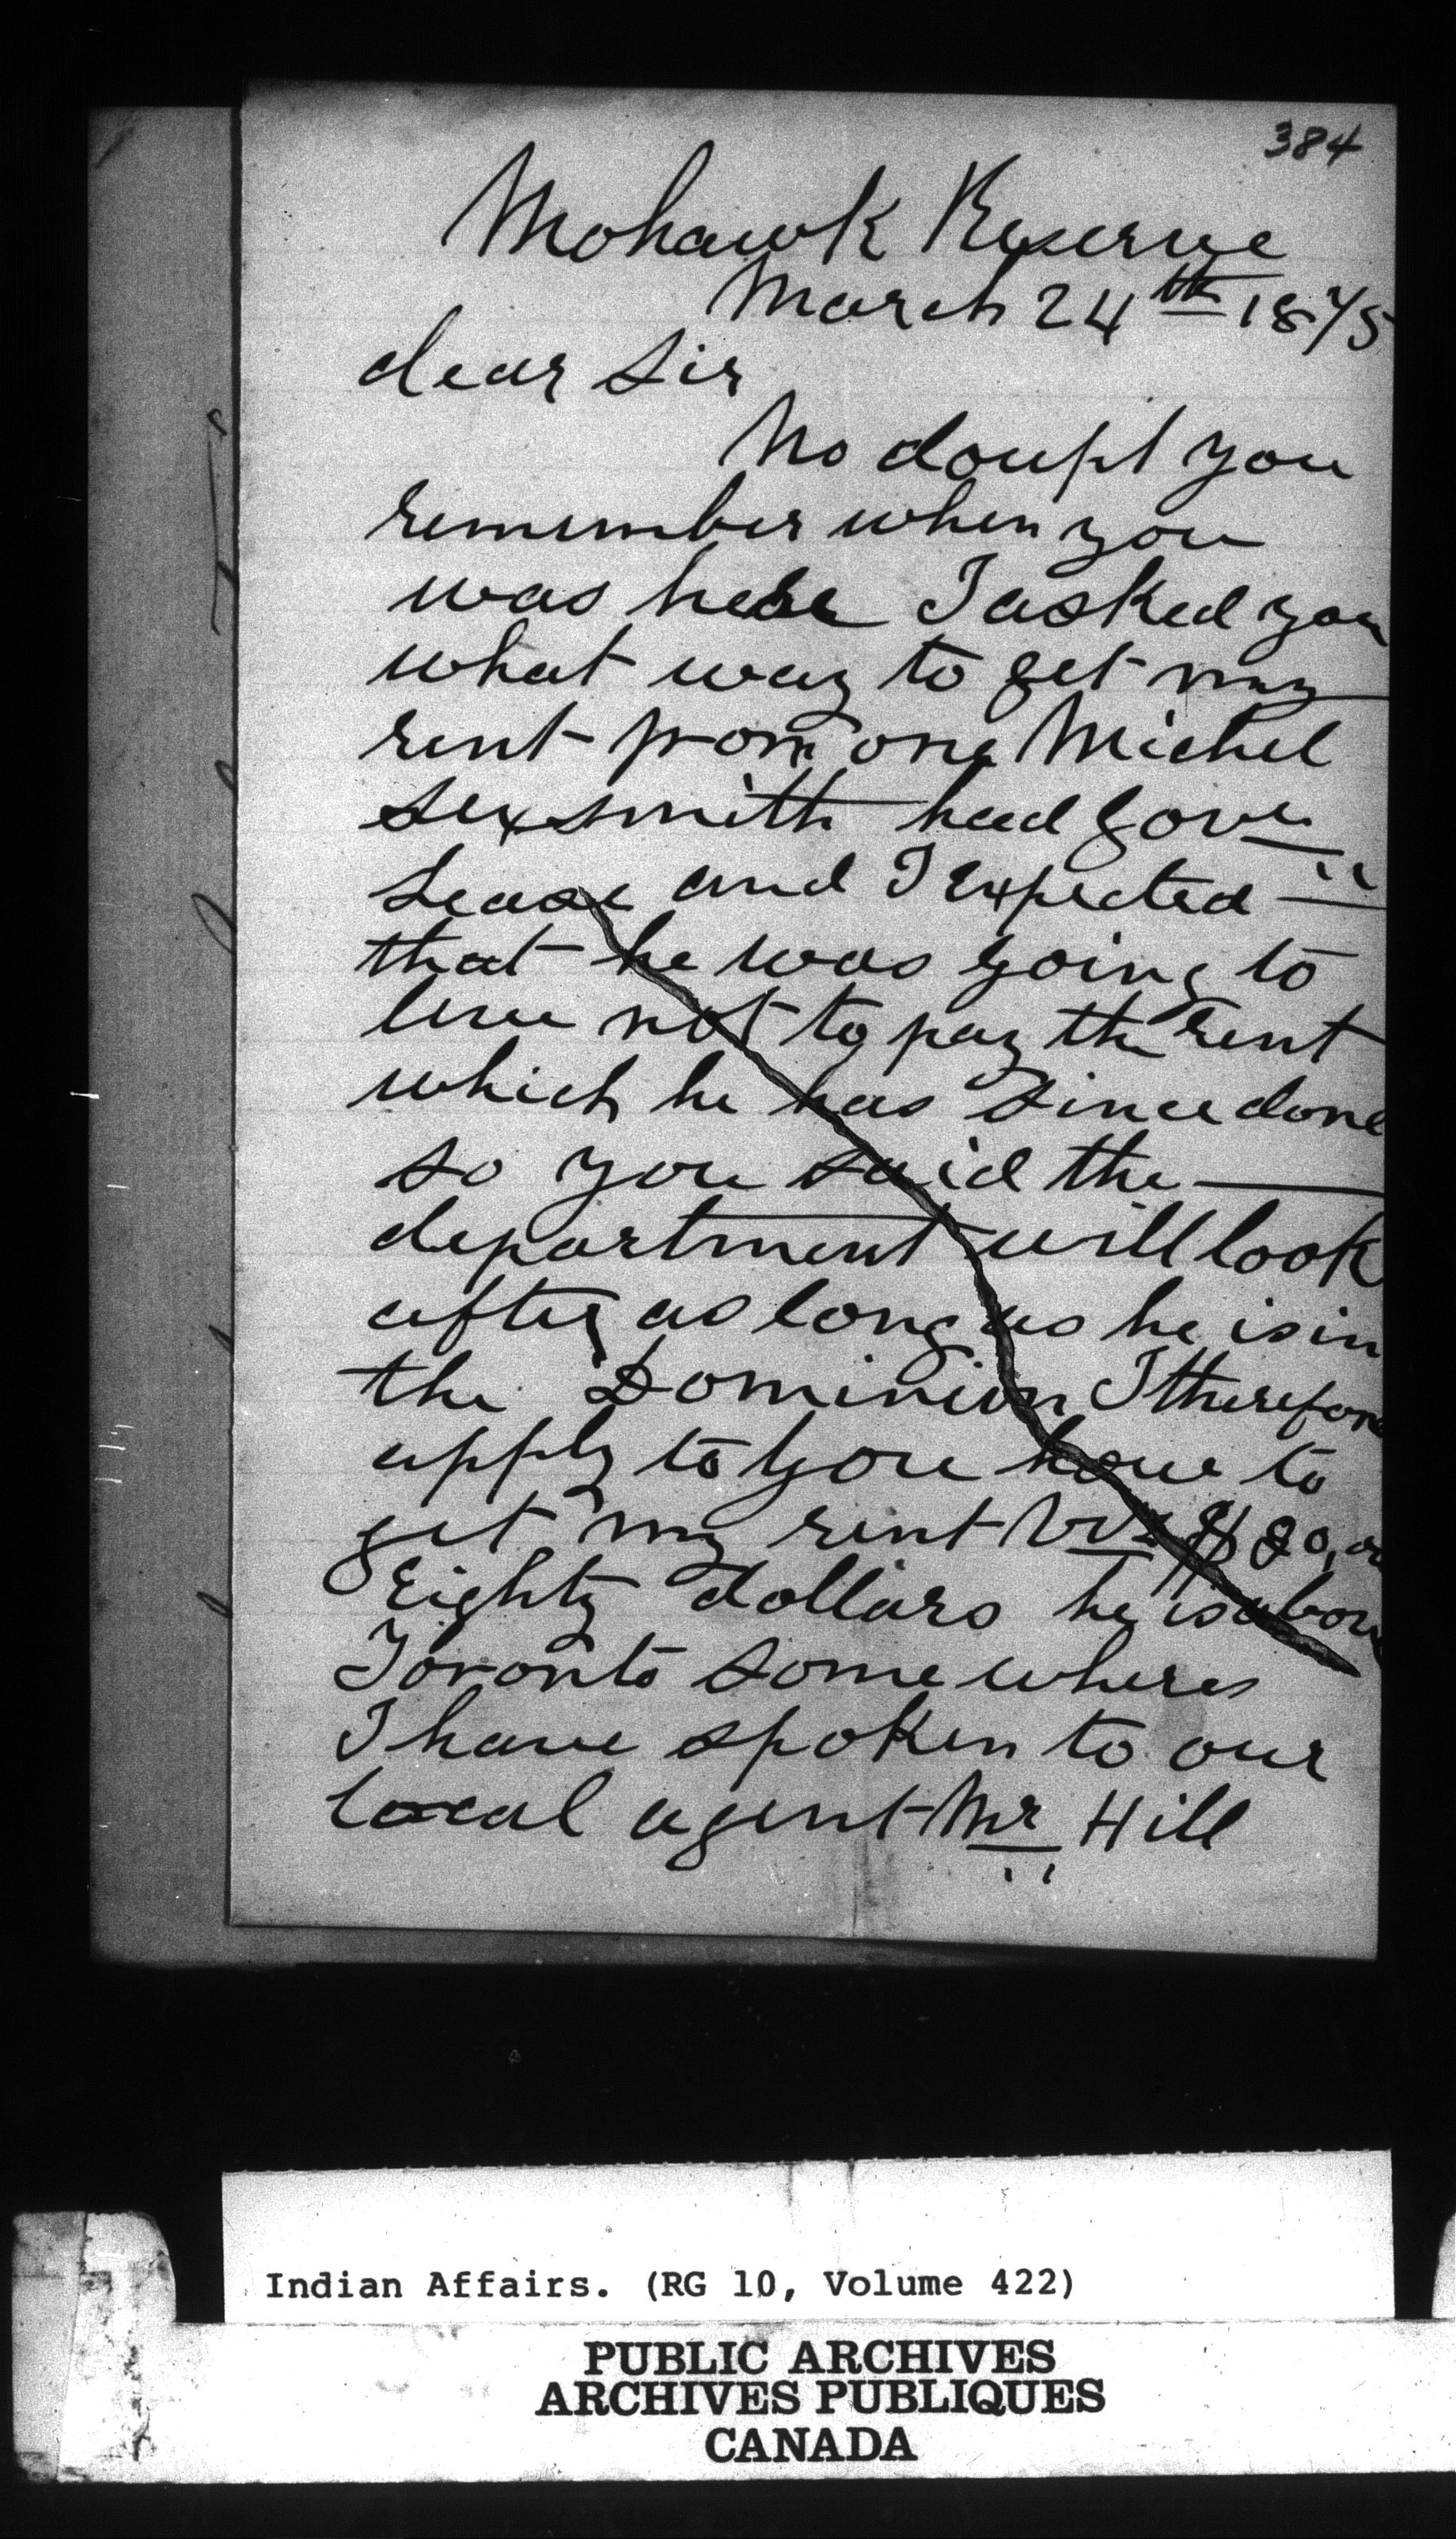 384
Mohawk Reserve
March 24th 1875
dear Sir
No doupt you
remember when you
was here I asked you
what way to get my
rent from one Michel
Sexsmith had Gove
Lease and I expected
that he was going to
not to pay the rent
which he has since done
so you said the
department will look
after as long as he is in
the Dominion I therefore
apply to you how to
get my rent viz $80,00
Eighty dollars he is abou
Toronto some wheres
I have spoken to our
local agent Mr Hill
Indian Affairs. (RG 10, Volume 422)
PUBLIC ARCHIVES
ARCHIVES PUBLIQUES
CANADA